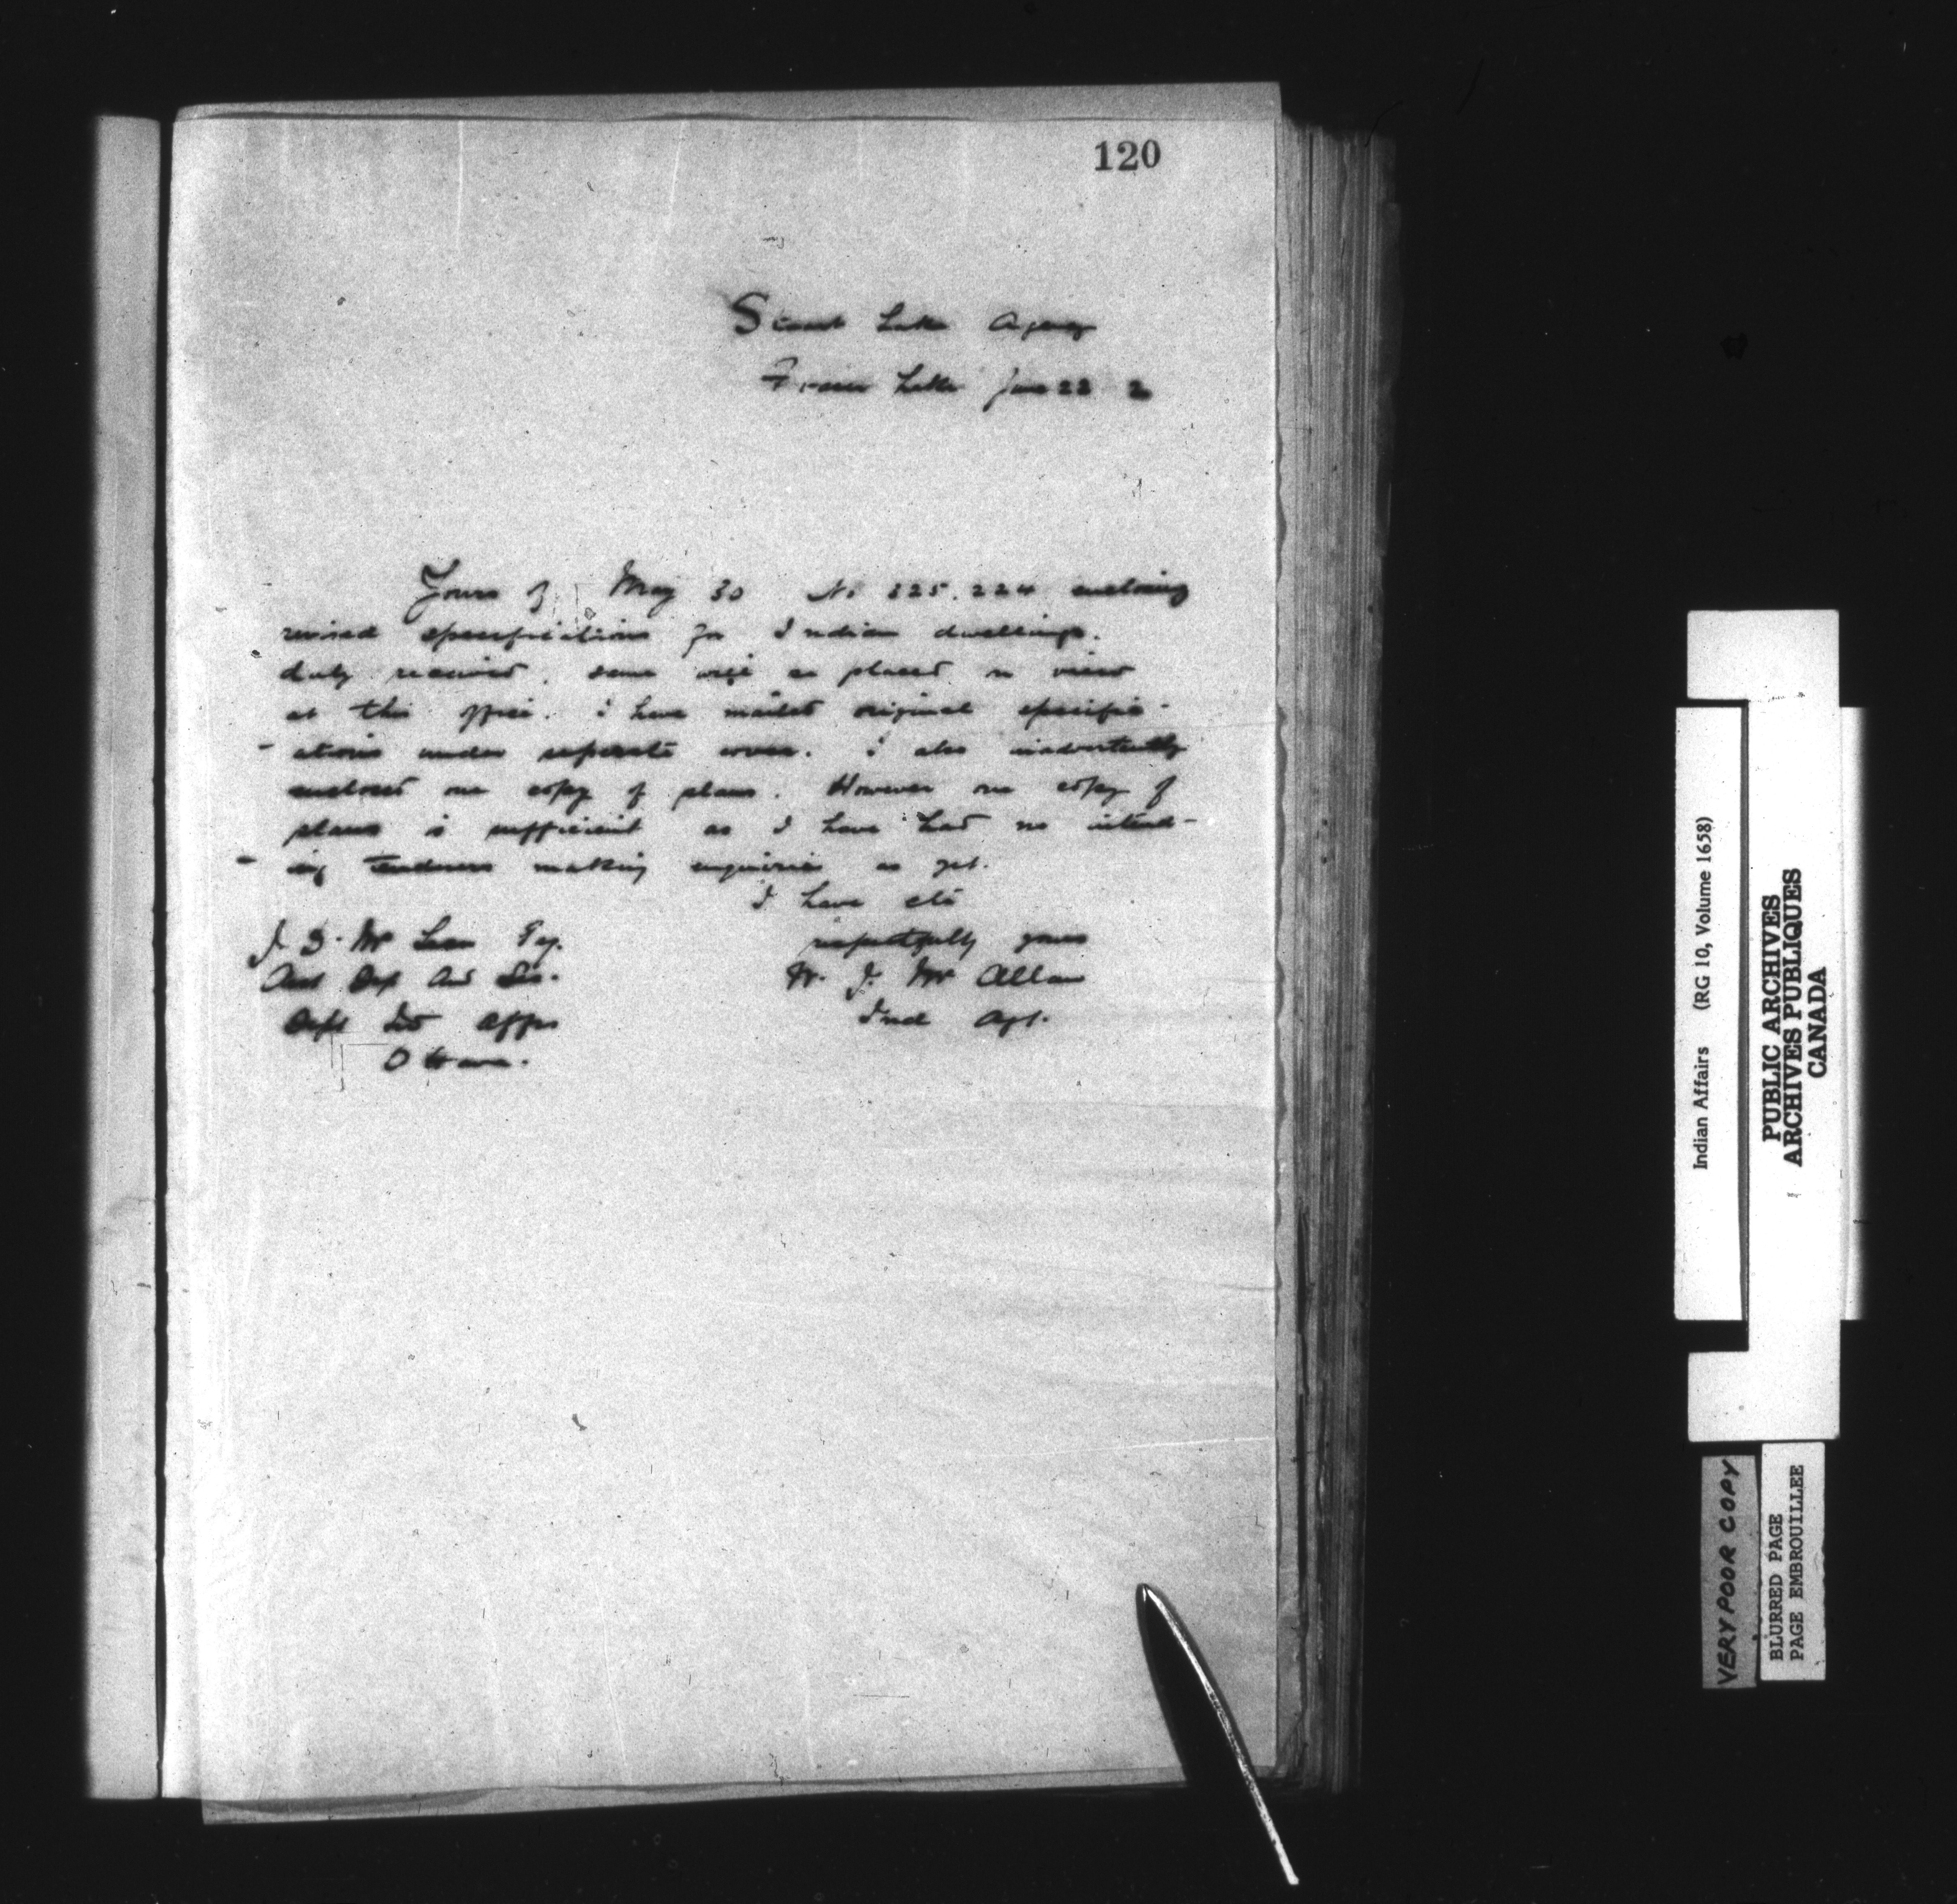 120
Stuart Lake Agency
Fraser Lake June 22 2
Yours of May 30 No 325.224 enclosing
revised specifications for Indian dwellings.
duly received. same will be placed on view
at this office. I have mailed original specific-
-ations under seperate cover. I also inadvertently
enclosed one copy of plans. However one copy of
plans is sufficient as I have had no intend-
-ing Tenderers making enquiries as yet.
I have etc
J. D. McLean Esq. respectfully yours
Asst Dep And Sec. W. J. McAllan
Dept Ind Affrs Ind Agt.
Ottawa.
Indian Affairs (RG 10, Volume 1658)
PUBLIC ARCHIVES
ARCHIVES PUBLIQUES
CANADA
VERY POOR COPY
BLURRED PAGE
PAGE EMBROUILLEE